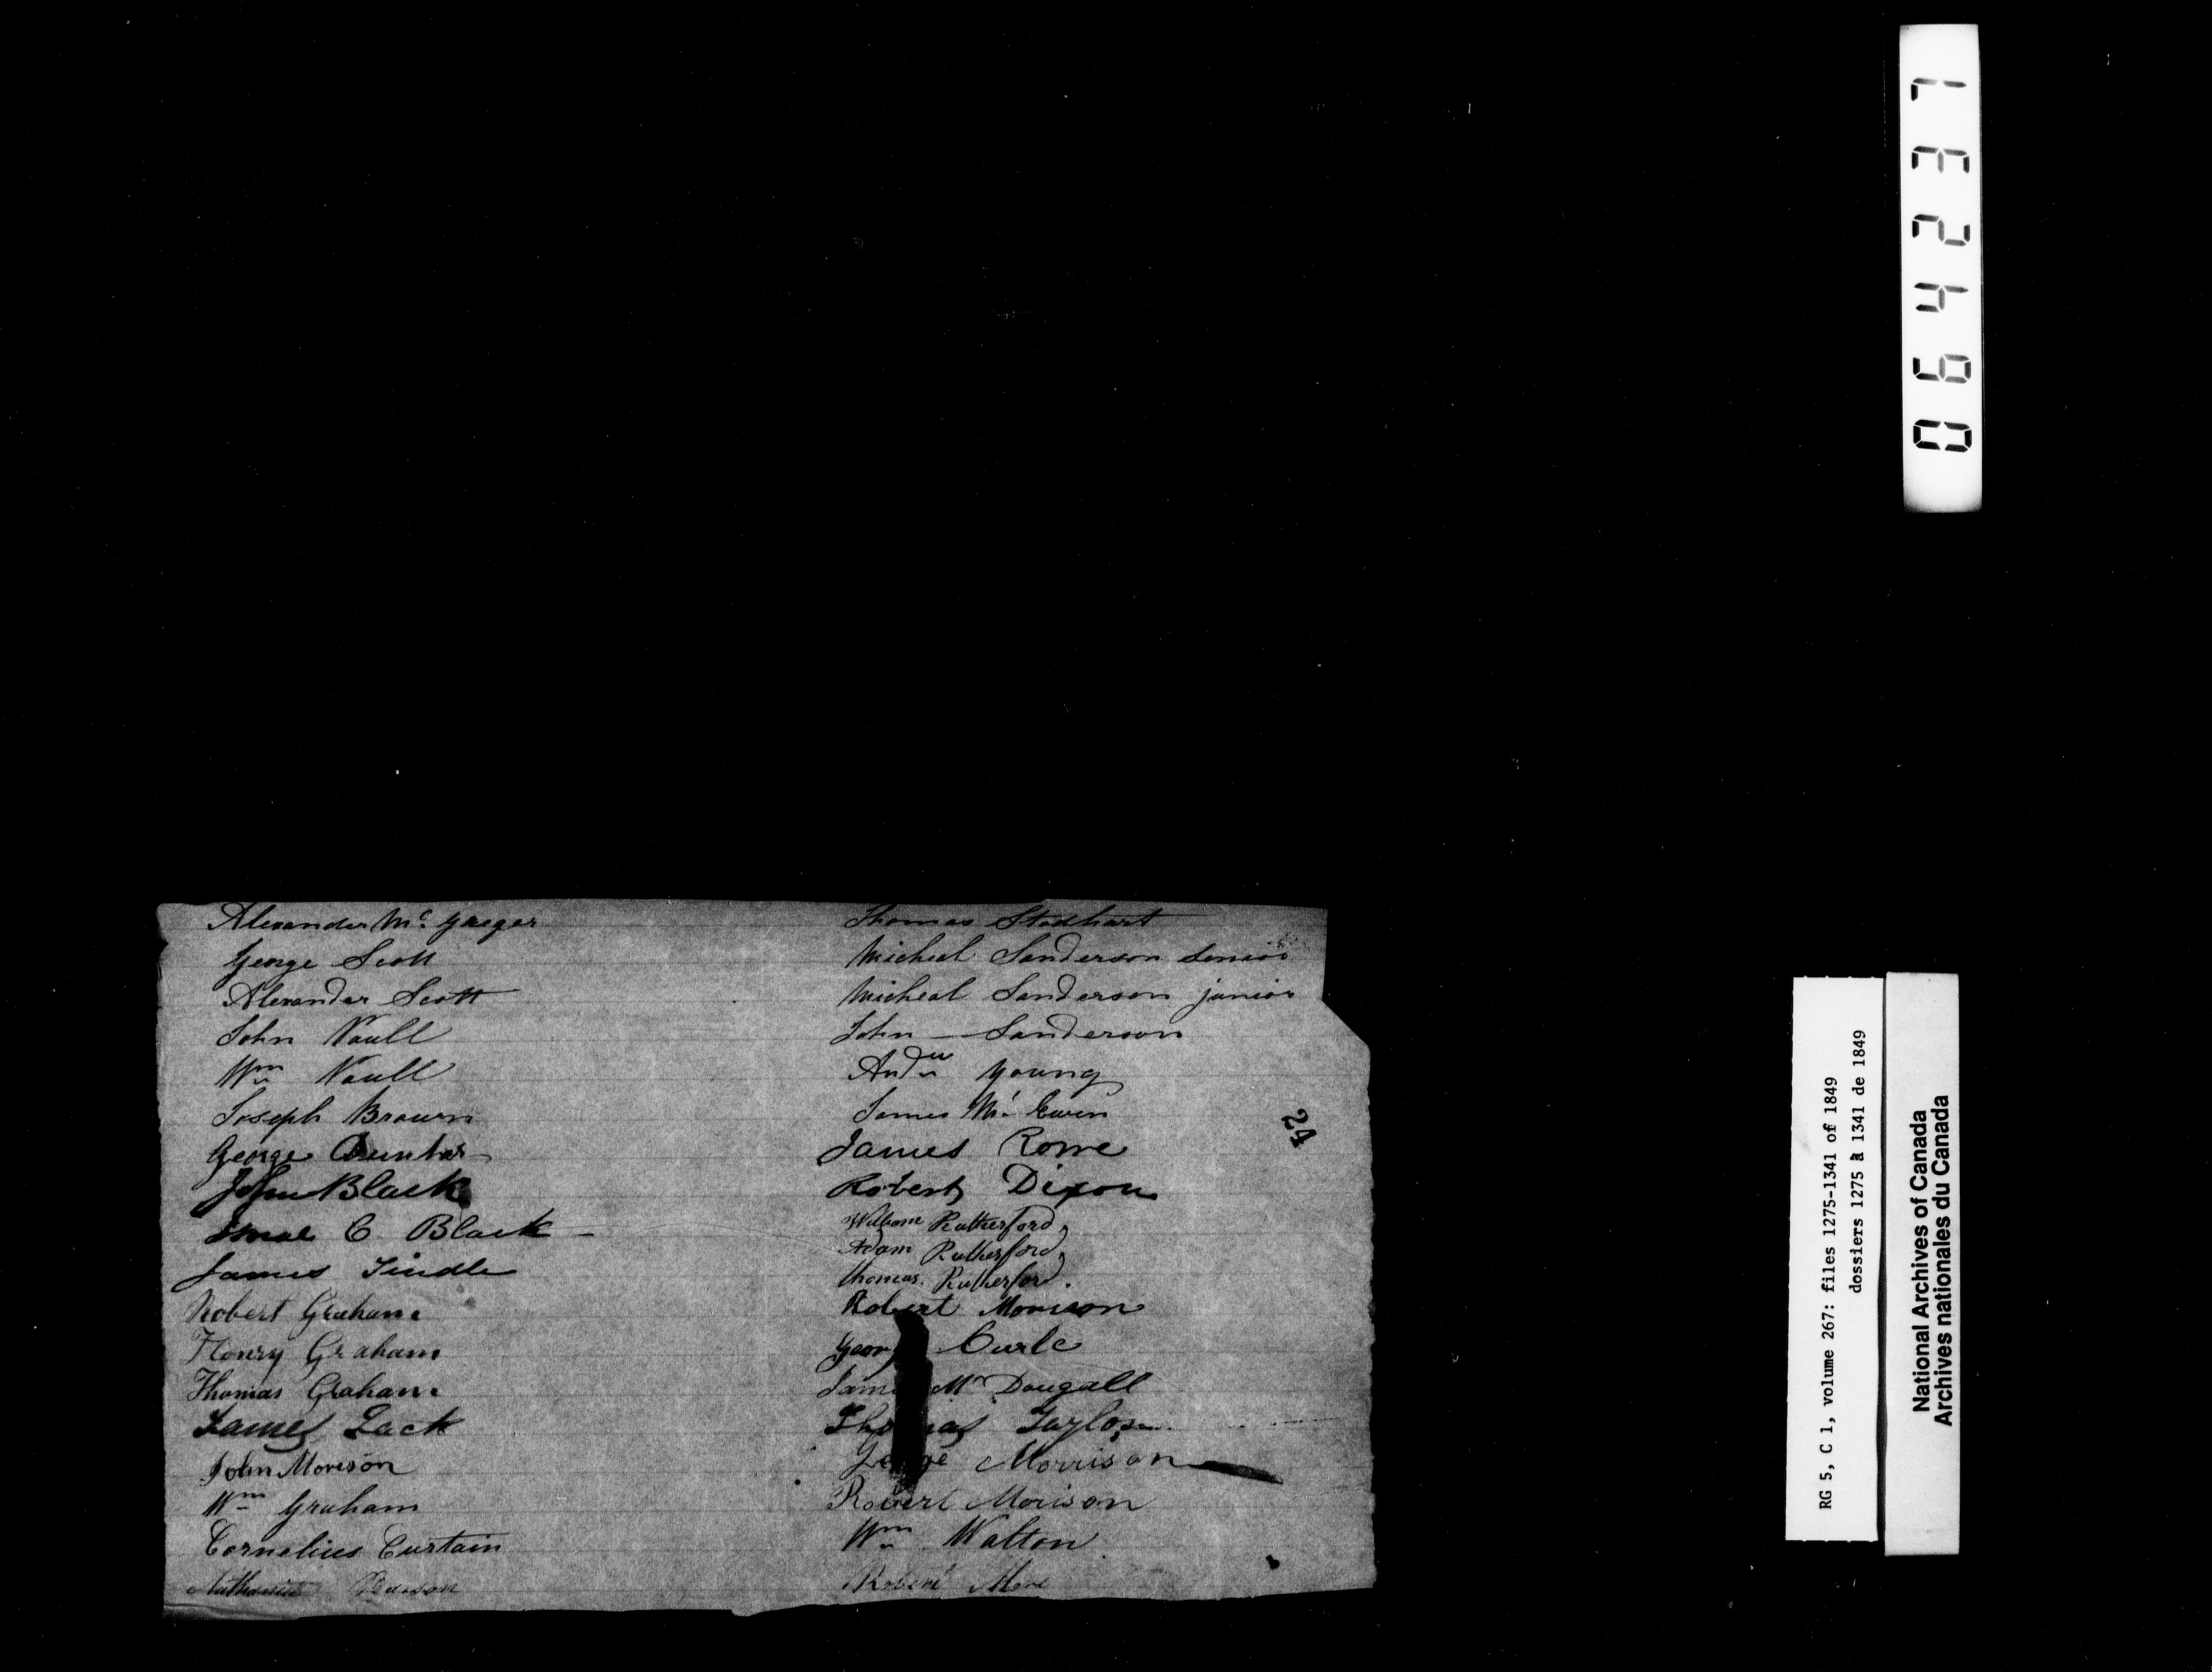 Alexander Mc Gregor
George Scott
Alexander Scott
John Naull
Wm Naull
Joseph Brown
George Dunbar
John Black
C. Black
James Tindle
Robert Graham
Henry Graham
Thomas Graham
James Lack
John Morison
Wm Graham
Cornelius Curtain
Thomas Stodhart
Micheal Sanderson Senior
Micheal Sanderson junior
John Sanderson
Andw Young
James Mc Ewin
James Rome
Robert Dixon
William Rutherford,
Adam Rutherford,
thomas. Rutherford.
Robert Morison
George Curle
James Mc Dougall
Thomas Taylor
George Morrison
Robert Morison
Wm Walton
Robert
24
064237
RG 5, C 1, volume 267: files 1275-1341 of 1849
dossiers 1275 à 1341 de 1849
National Archives of Canada
Archives nationales du Canada